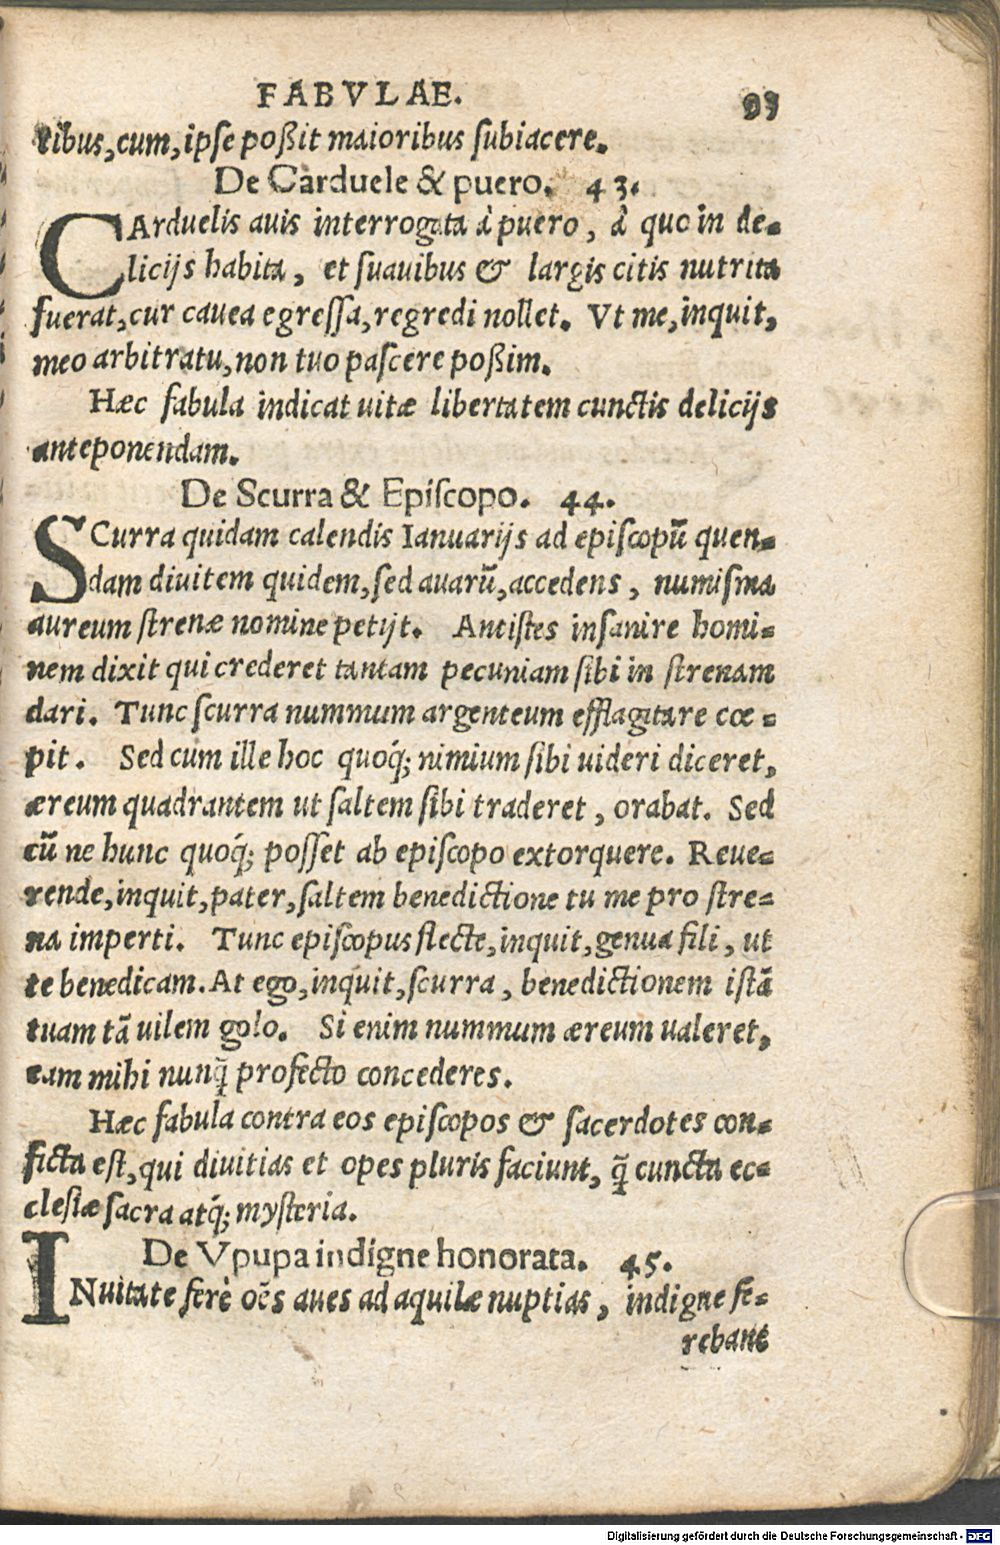 FABVLAE. 93
tibus, cum, ipse poßit maioribus subiacere.
De Carduele & puero. 43.
CArduelis auis interrogata à puero, à quo in de-
licijs habita, et suauibus & largis citis nutrita
fuerat, cur cauea egressa, regredi nollet. Vt me, inquit,
meo arbitratu, non tuo pascere poßim.
Hæc fabula indicat uitæ libertatem cunctis delicijs
anteponendam.
De Scurra & Episcopo. 44.
SCurra quidam calendis Ianuarijs ad episcopũ quen-
dam diuitem quidem, sed auarũ, accedens, numisma
aureum strenæ nomine petijt. Antistes insanire homi-
nem dixit qui crederet tantam pecuniam sibi in strenam
dari. Tunc scurra nummum argenteum efflagitare cœ-
pit. Sed cum ille hoc quoq́; nimium sibi uideri diceret,
æreum quadrantem ut saltem sibi traderet, orabat. Sed
cũ ne hunc quoq́; posset ab episcopo extorquere. Reue-
rende, inquit, pater, saltem benedictione tu me pro stre-
na imperti. Tunc episcopus flecte, inquit, genua fili, ut
te benedicam. At ego, inquit, scurra, benedictionem istã
tuam tã uilem golo. Si enim nummum æreum ualeret,
eam mihi nunq̃ profecto concederes.
Hæc fabula contra eos episcopos & sacerdotes con-
ficta est, qui diuitias et opes pluris faciunt, q̃ cuncta ec-
clesiæ sacra atq́; mysteria.
De Vpupa indigne honorata. 45.
INuitate ferè oẽs aues ad aquilæ nuptias, indigne fe-
rebant
Digitalisierung gefördert durch die Deutsche Forschungsgemeinschaft - DFG